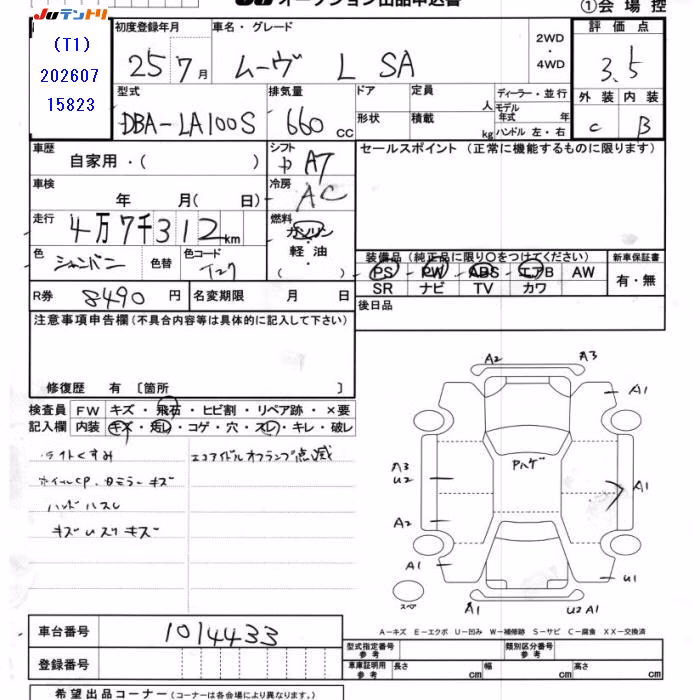 JU オークション出品申込書
①会場控
JUテントリ
(T1)
202607
15823
初度登録年月
車名・グレード
25 7月
ムーヴ L SA
2WD
・
4WD
評価点
3.5
外装 内装
C B
型式
DBA-LA100S
排気量
660 CC
ドア
定員
人
形状
積載
kg
ディーラー・並行
モデル
年式 年
ハンドル 左・右
車歴
自家用・( )
シフト
AT
セールスポイント(正常に機能するものに限ります)
車検
年 月(日)
冷房
AC
走行
4万7千312km
燃料
ガソリン
・
軽油
( )
色
シャンパン
色替
色コード
T27
装備品(純正品に限り〇をつけてください)
PS PW ABS エアB AW
SR ナビ TV カワ
新車保証書
有・無
R券
8490円
名変期限 月 日
後日品
注意事項申告欄(不具合内容等は具体的に記入して下さい)
修復歴 有〔箇所 〕
検査員 FW キズ・飛石・ヒビ割・リペア跡・×要
記入欄 内装 キズ・汚レ・コゲ・穴・スレ・キレ・破レ
ライトくすみ
エコアイドルオフランプ点滅
ホイルCP.Bミラーキズ
ハンドルスレ
A2 A3
A1
Pハゲ
A3
U2
A1
A2
A1
U1
スペア
A1 U2 A1
A-キズ E-エクボ U-凹み W-補修跡 S-サビ C-腐食 XX-交換済
車台番号
1014433
登録番号
型式指定番号
参考
類別区分番号
参考
車庫証明用
参考
長さ cm 幅 cm 高さ cm
希望出品コーナー(コーナーは各会場により異なります。)